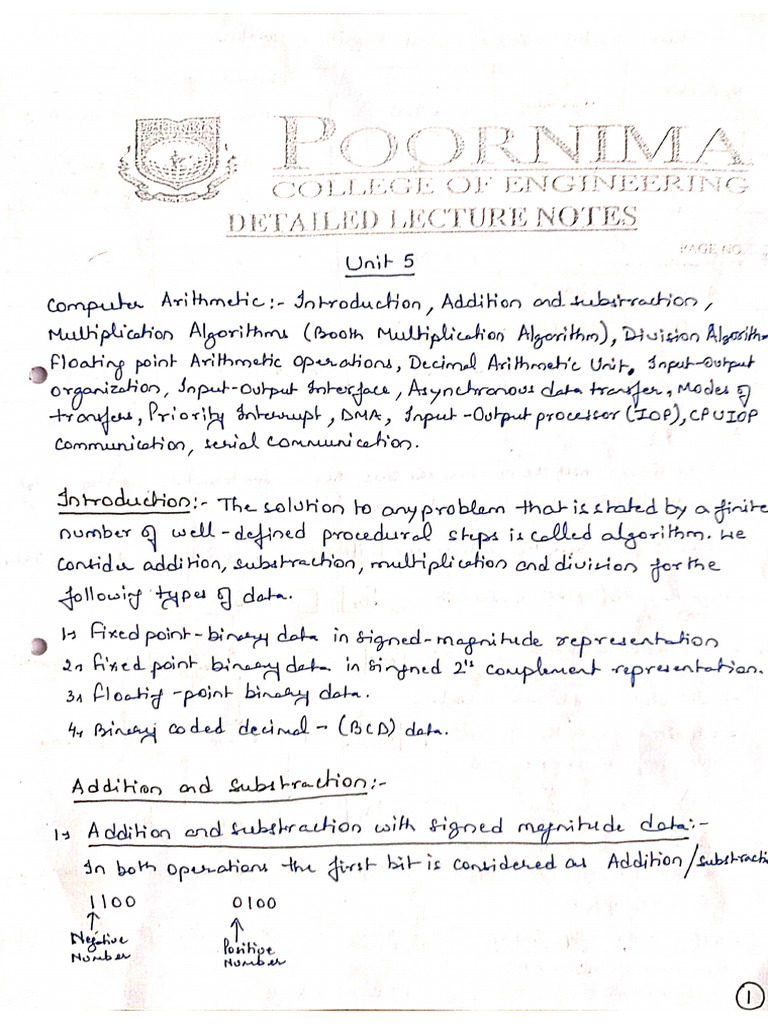 POORNIMA
COLLEGE OF ENGINEERING
DETAILED LECTURE NOTES
PAGE NO.
Unit 5
Computer Arithmetic:- Introduction, Addition and substraction,
Multiplication Algorithms (Booth Multiplication Algorithm), Division Algorithm
floating point Arithmetic operations, Decimal Arithmetic Unit, Input-Output
organization, Input-Output Interface, Asynchronous data transfer, Modes of
transfers, Priority Interrupt, DMA, Input-Output processor (IOP), CPUIOP
communication, serial communication.
Introduction:- The solution to any problem that is stated by a finite
number of well-defined procedural steps is called algorithm. we
consider addition, substraction, multiplication and division for the
following types of data.
1, fixed point-binary data in signed-magnitude representation
2, fixed point binary data in singned 2's complement representation.
3, floatig-point binary data.
4, Binary coded decimal - (BCD) data.
Addition and substraction:-
1, Addition and substraction with signed magnitude data:-
In both operations the first bit is considered as Addition/substracti
1100 0100
Negative Positive
Number Number
1